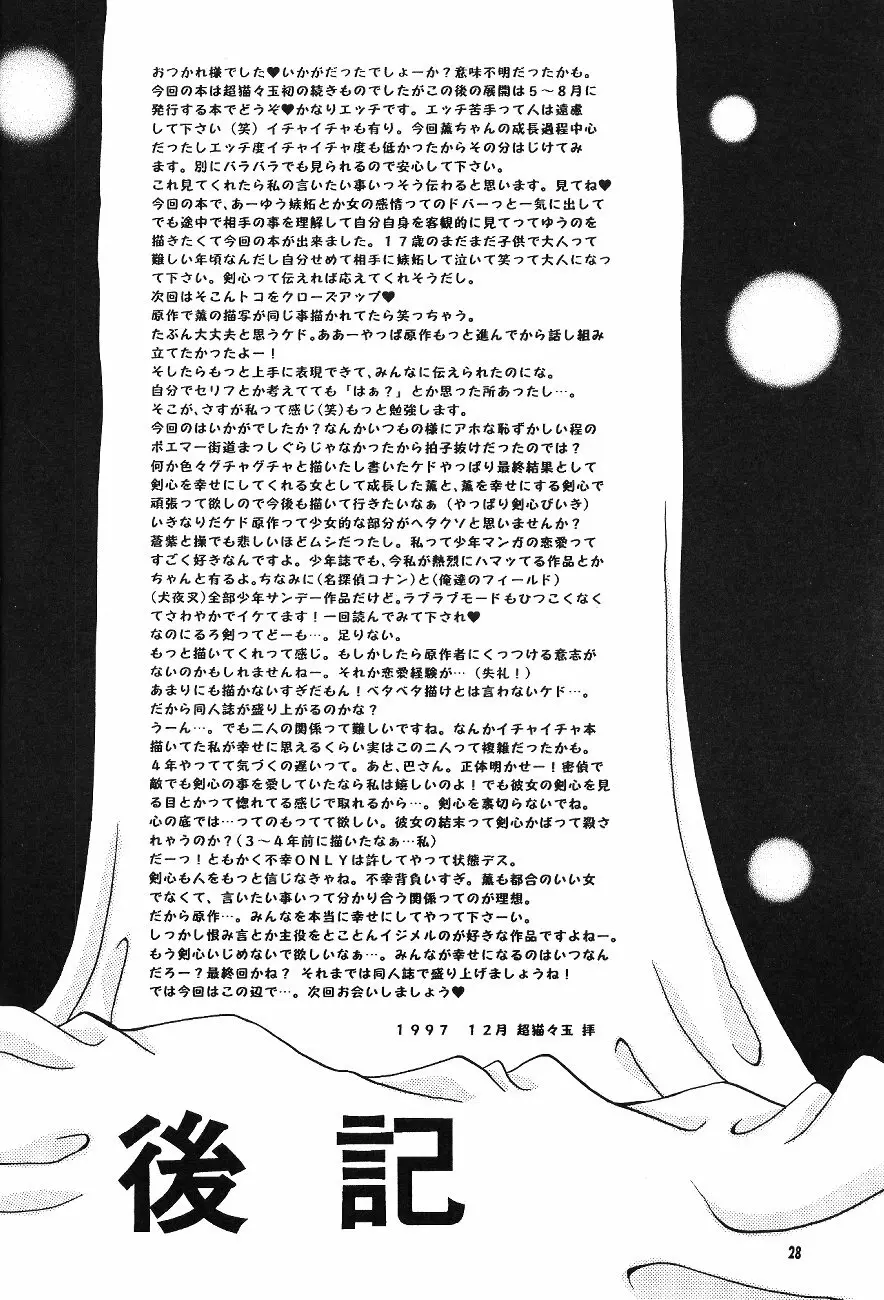 おつかれ様でした♥いかがだったでしょーか?意味不明だったかも。
今回の本は超猫々玉初の続きものでしたがこの後の展開は5〜8月に
発行する本でどうぞ♥かなりエッチです。エッチ苦手って人は遠慮
して下さい(笑)イチャイチャも有り。今回薫ちゃんの成長過程中心
だったしエッチ度イチャイチャ度も低かったからその分はじけてみ
ます。別にバラバラでも見られるので安心して下さい。
これ見てくれたら私の言いたい事いっそう伝わると思います。見てね♥
今回の本で、あーゆう嫉妬とか女の感情ってのドバーっと一気に出して
でも途中で相手の事を理解して自分自身を客観的に見てってゆうのを
描きたくて今回の本が出来ました。17歳のまだまだ子供で大人って
難しい年頃なんだし自分せめて相手に嫉妬して泣いて笑って大人になっ
て下さい。剣心って伝えれば応えてくれそうだし。
次回はそこんトコをクローズアップ♥
原作で薫の描写が同じ事描かれてたら笑っちゃう。
たぶん大丈夫と思うケド。ああーやっぱ原作もっと進んでから話し組み
立てたかったよー!
そしたらもっと上手に表現できて、みんなに伝えられたのにな。
自分でセリフとか考えてても「はぁ?」とか思った所あったし…。
そこが、さすが私って感じ(笑)もっと勉強します。
今回のはいかがでしたか?なんかいつもの様にアホな恥ずかしい程の
ポエマー街道まっしぐらじゃなかったから拍子抜けだったのでは?
何か色々グチャグチャと描いたし書いたケドやっぱり最終結果として
剣心を幸せにしてくれる女として成長した薫と、薫を幸せにする剣心で
頑張って欲しので今後も描いて行きたいなぁ(やっぱり剣心びいき)
いきなりだケド原作って少女的な部分がヘタクソと思いませんか?
蒼紫と操でも悲しいほどムシだったし。私って少年マンガの恋愛って
すごく好きなんですよ。少年誌でも、今私が熱烈にハマッてる作品とか
ちゃんと有るよ。ちなみに(名探偵コナン)と(俺達のフィールド)
(犬夜叉)全部少年サンデー作品だけど。ラブラブモードもひつこくなく
てさわやかでイケてます!一回読んでみて下され♥
なのにるろ剣ってどーも…。足りない。
もっと描いてくれって感じ。もしかしたら原作者にくっつける意志が
ないのかもしれませんねー。それか恋愛経験が…(失礼!)
あまりにも描かないすぎだもん!ベタベタ描けとは言わないケド…。
だから同人誌が盛り上がるのかな?
うーん…。でも二人の関係って難しいですね。なんかイチャイチャ本
描いてた私が幸せに思えるくらい実はこの二人って複雑だったかも。
4年やってて気づくの遅いって。あと、巴さん。正体明かせー!密偵で
敵でも剣心の事を愛していたなら私は嬉しいのよ!でも彼女の剣心を見
る目とかって惚れてる感じで取れるから…。剣心を裏切らないでね。
心の底では…ってのもってて欲しい。彼女の結末って剣心かばって殺さ
れゃうのか?(3〜4年前に描いたなぁ…私)
だーっ!ともかく不幸ONLYは許してやって状態デス。
剣心も人をもっと信じなきゃね。不幸背負いすぎ。薫も都合のいい女
でなくて、言いたい事いって分かり合う関係ってのが理想。
だから原作…。みんなを本当に幸せにしてやって下さーい。
しっかし恨み言とか主役をとことんイジメルのが好きな作品ですよねー。
もう剣心いじめないで欲しいなぁ…。みんなが幸せになるのはいつなん
だろー?最終回かね? それまでは同人誌で盛り上げましょうね!
では今回はこの辺で…。次回お会いしましょう♥
1997 12月 超猫々玉 拝
後記
28